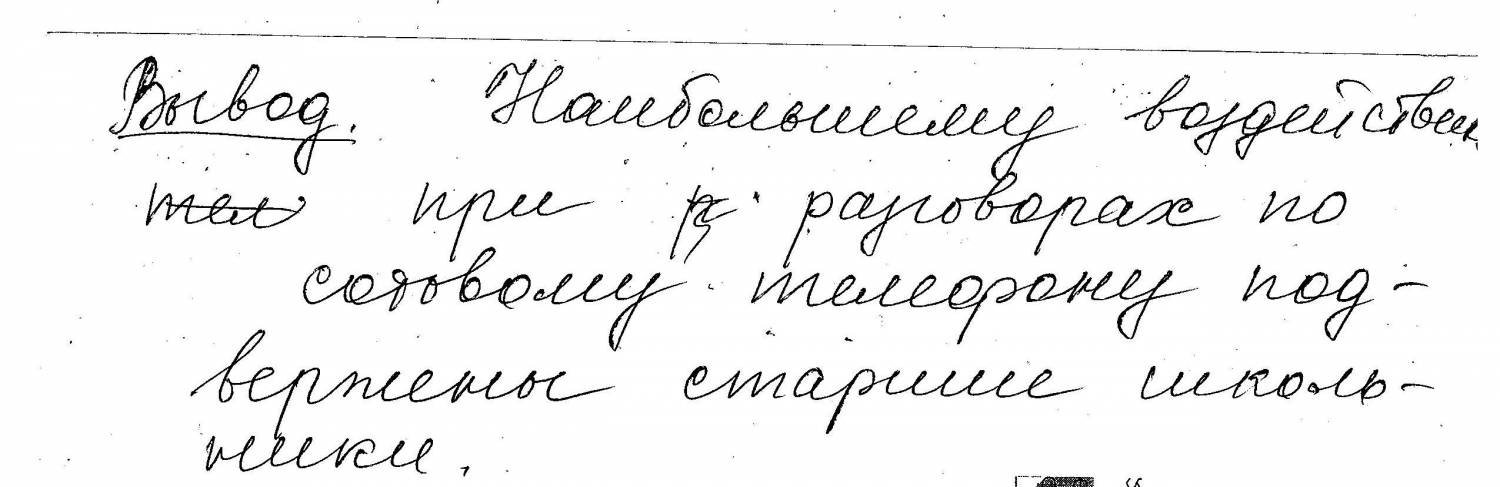 Вывод. Наибольшему воздействи
тел при р разговорах по
сотовому телефону под-
вержены старшие школь-
ники.